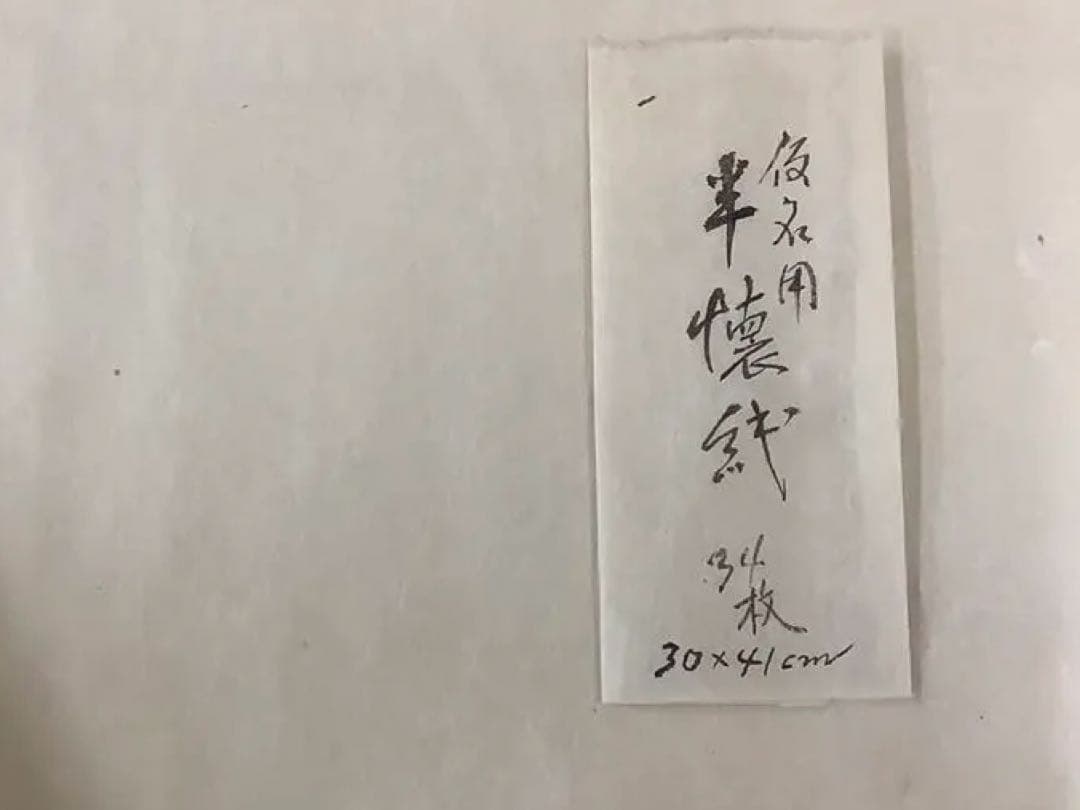 仮名用
半懐紙
34枚
30×41cm